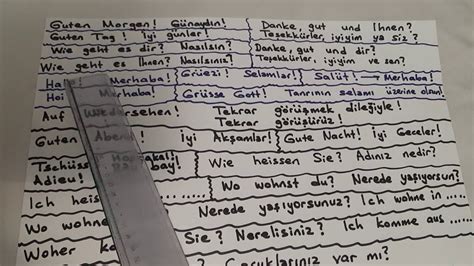 Guten Morgen! Günaydın! Danke, gut und Ihnen?
Guten Tag! İyi günler! Teşekkürler, iyiyim ya siz?
Wie geht es dir? Nasılsın? Danke, gut und dir?
Wie geht es Ihnen? Nasılsınız? Teşekkürler, iyiyim ve sen?
Merhaba! Grüezi! Selamlar! Salüt! → Merhaba!
Hoi Merhaba! Grüsse Gott! Tanrının selamı üzerine olsun!
Auf Tekrar görüşmek dileğiyle!
Tekrar görüşürüz!
Guten İyi Akşamlar! Gute Nacht! İyi Geceler!
Tschüss Wie heissen Sie? Adınız nedir?
Adieu!
Wo wohnst du? Nerede yaşıyorsun?
Ich Nerede yaşıyorsunuz? Ich wohne in .....
Wo Sie? Nerelisiniz? Ich komme aus .....
Woher Çocuklarınız var mı?